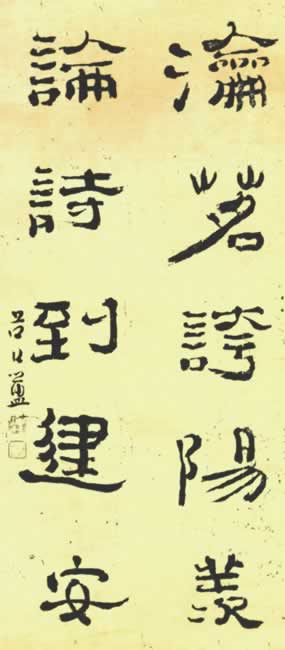 瀹茗誇陽羨
論詩到建安
呂